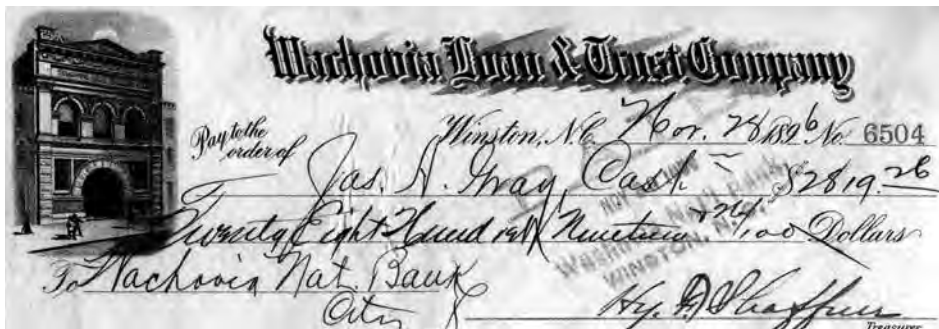 Wachovia Loan & Trust Company
Winston, N.C. Nov. 28 1896 No. 6504
Pay to the order of Jas. A. Gray, Cash $2819.26
Twenty Eight Hundred Nineteen + 26/100 Dollars
To Wachovia Nat. Bank
City Hy. F. Shaffner
Treasurer
WACHOVIA NAT'L BANK
WINSTON, N.C.